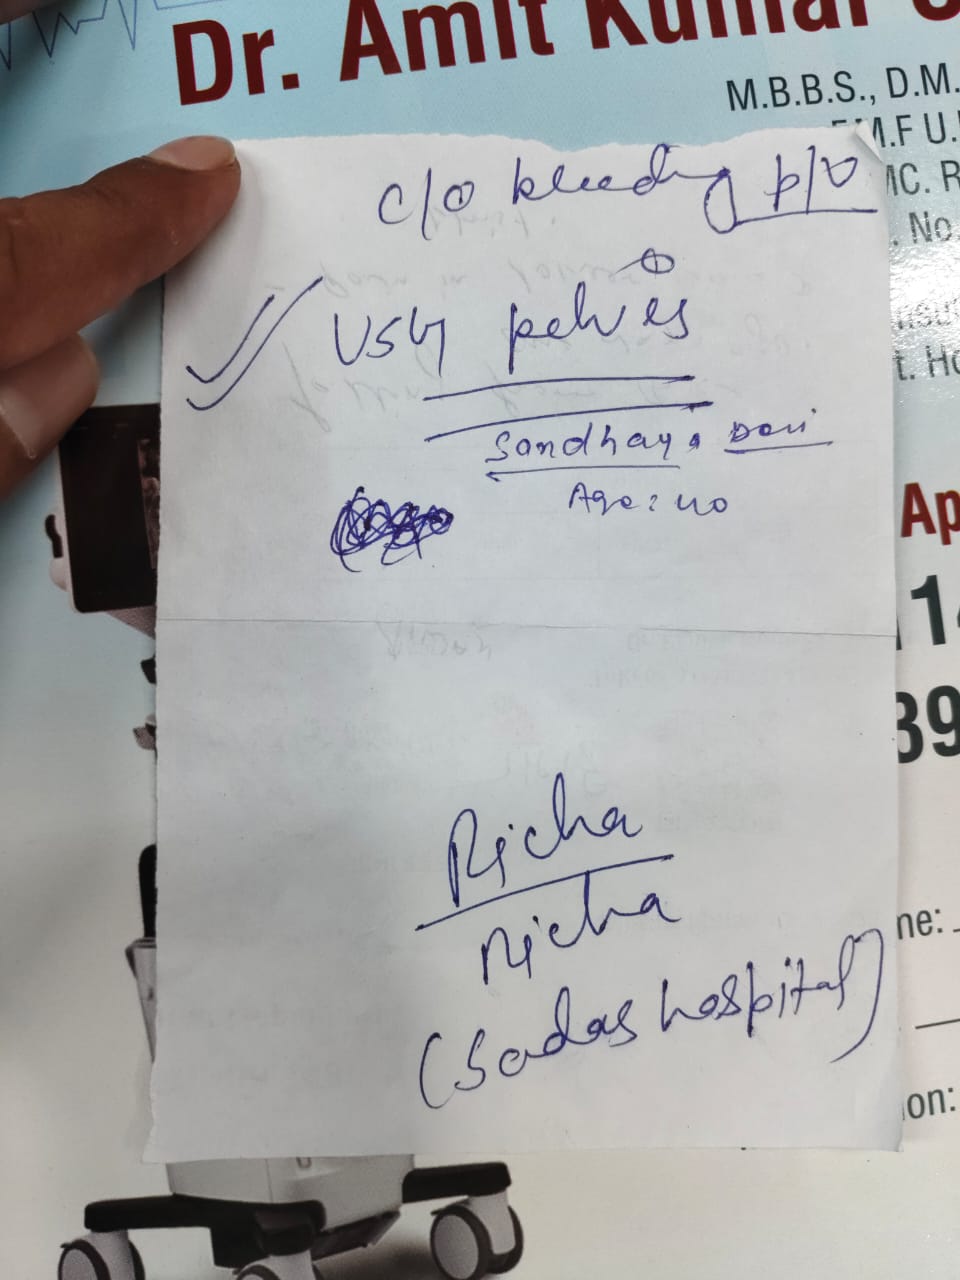 Dr. Amit Kumar
M.B.B.S., D.M.
.M.F U.
MC. R
. No
c/o bleeding p/v
USG pelvis
Sandhaya Devi
Age: 40
t. Ho
Ap
14
39
Richa
Richa
(Sadas hospital)
me:
ion: